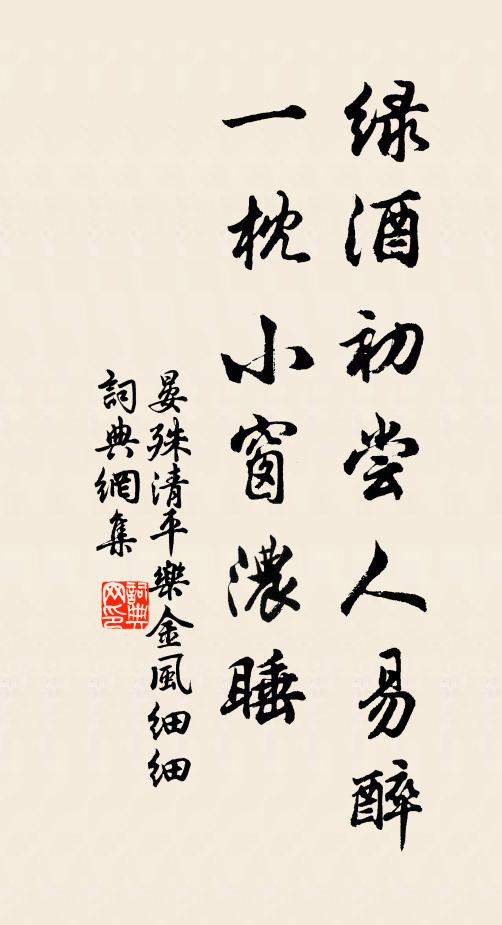 绿酒初尝人易醉
一枕小窗濃睡
晏殊清平樂金風细细
詞典網集
詞典网印